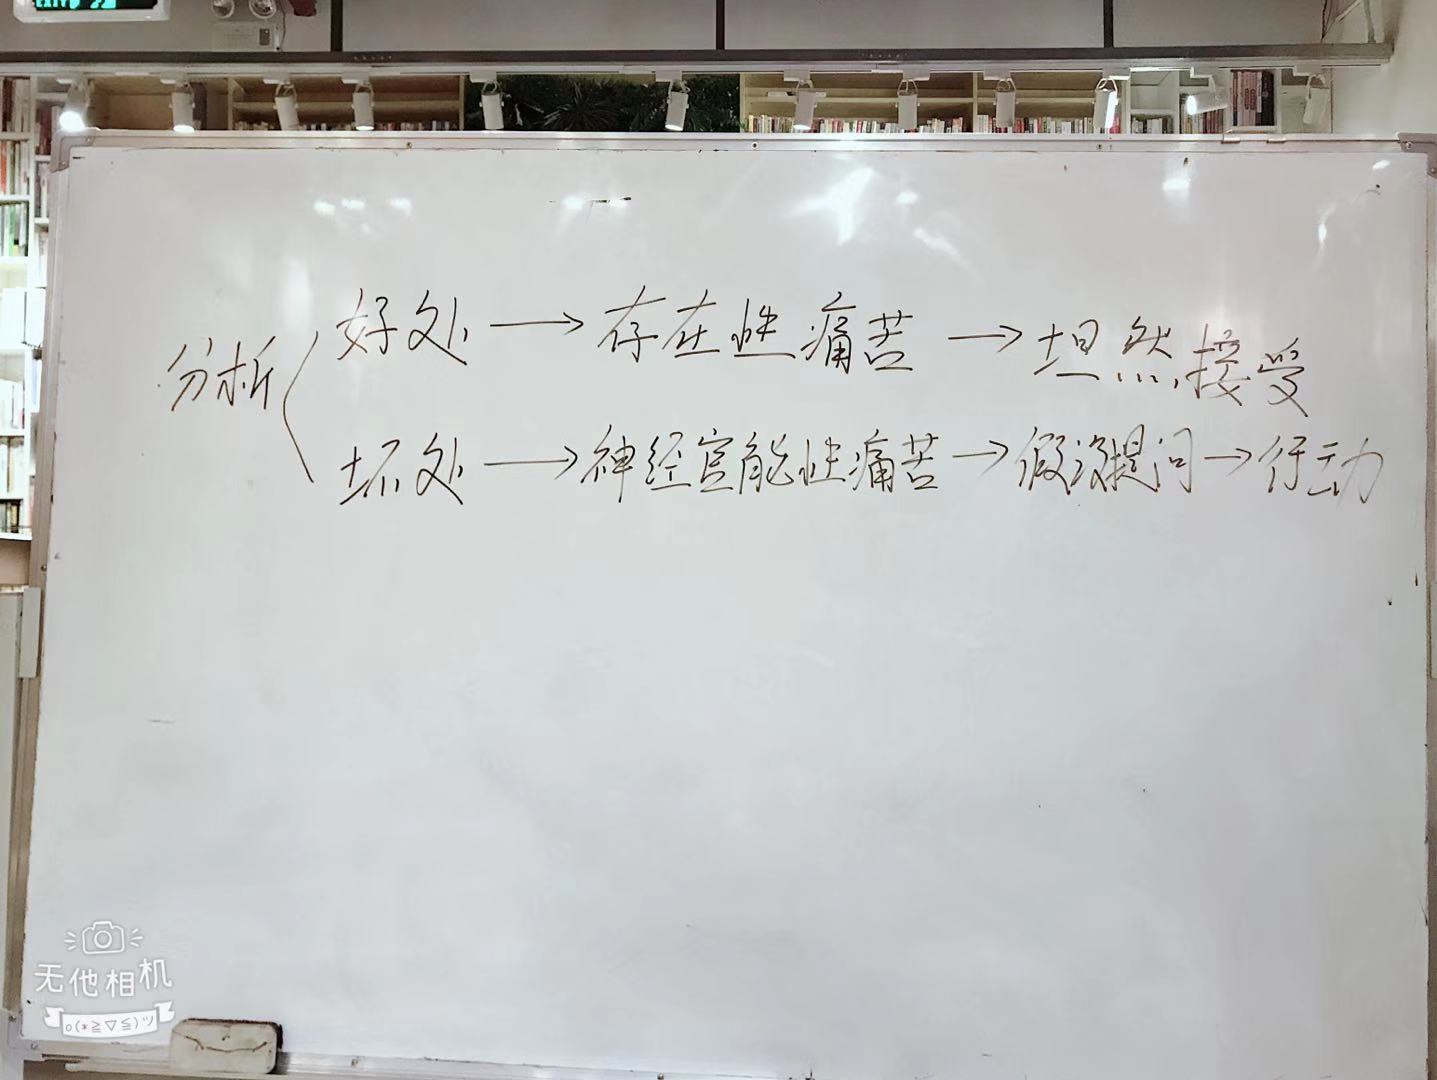 分析
好处→存在性痛苦→坦然接受
坏处→神经官能性痛苦→假设提问→行动
无他相机
o(*≧▽≦)ツ